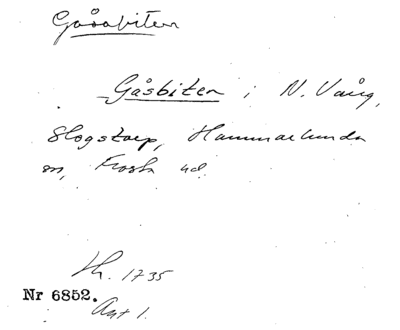 Gåsabiten
Gåsbiten i N. Vång,
Slogstorp, Hammarlunda
sn, Frosta hd.
Lh. 1735
Nr 6852.
Akt 1.